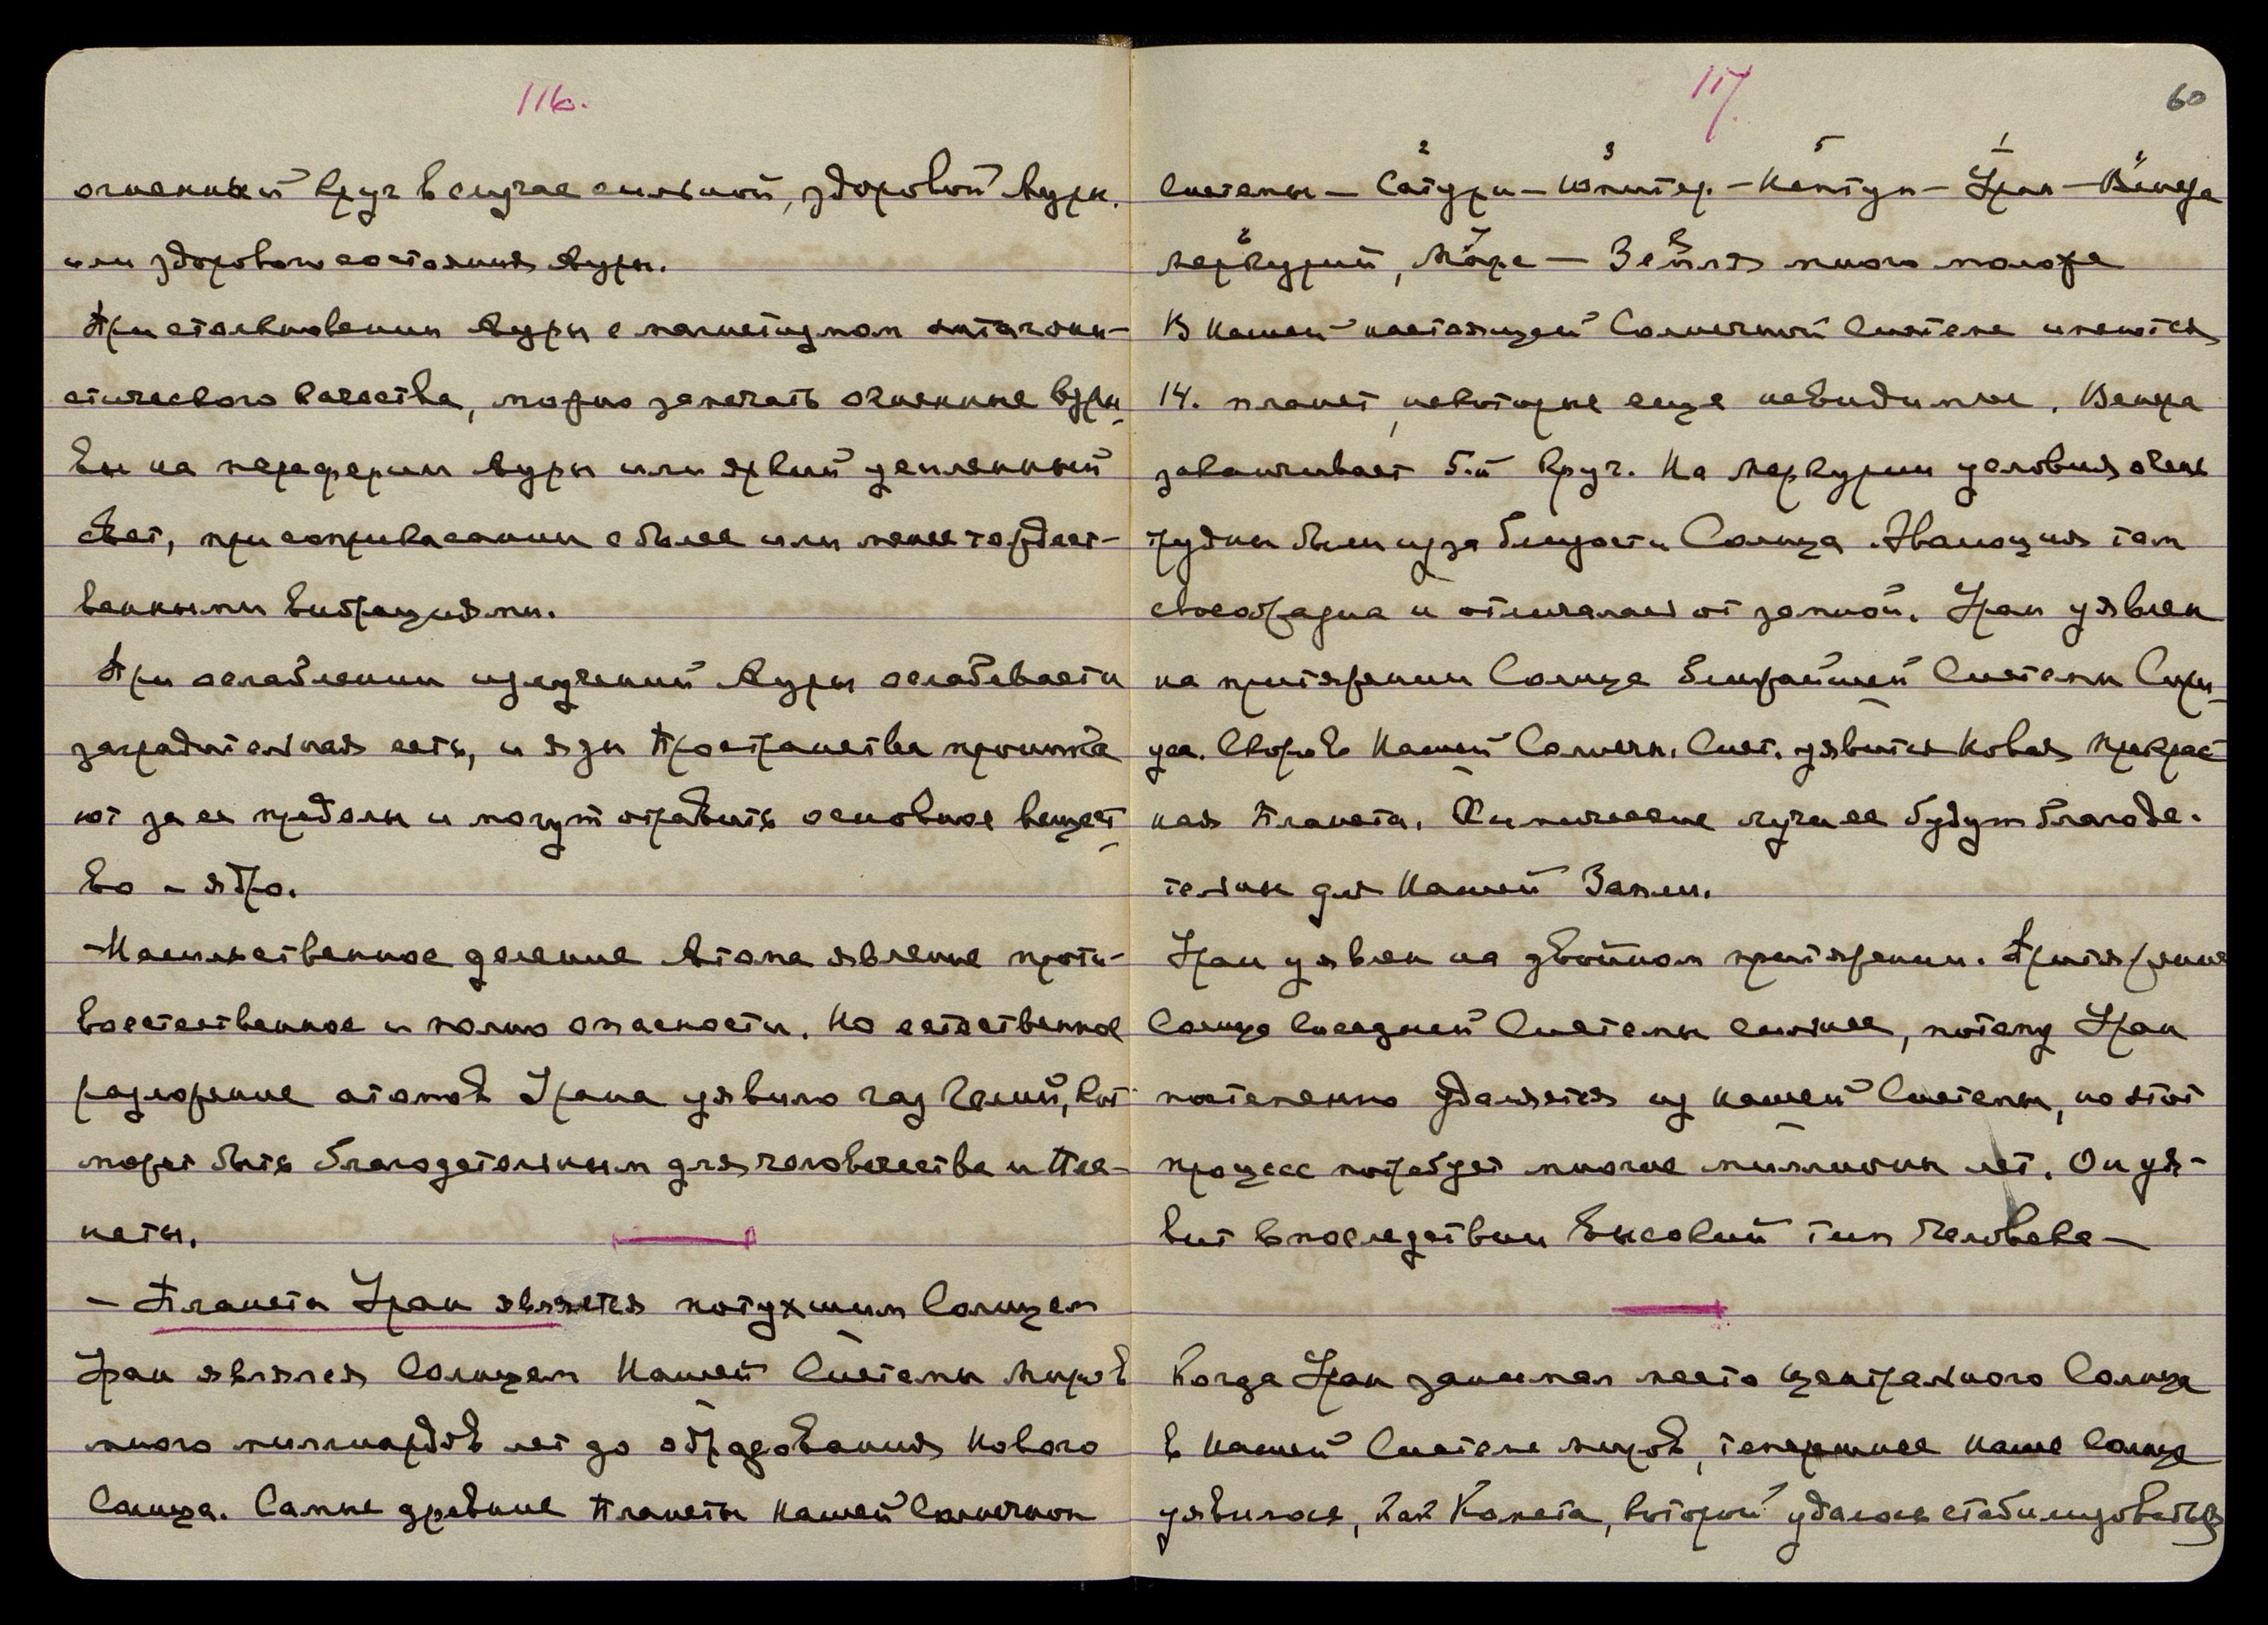 116.
огненный круг в случае сильной, здоровой Ауры.
или здорового состояния Ауры.
При столкновении Ауры с магнетизмом антагони-
стического качества, можно замечать огненные взры-
вы на периферии Ауры или яркий усиленный
свет, при соприкасании с более или менее тождест-
венными вибрациями.
При ослаблении излучений Ауры ослабевает и
заградительная сеть, и язы Пространства проника
ют за ее пределы и могут отравить основное вещест
во - ядро.
-Насильственное деление Атома явление проти-
воестественное и полно опасности. Но естественное
разложение атомов Урана уявило газ Гелий, кот
может быть благодетельным для человечества и Пла-
неты.
- Планета Уран является потухшим Солнцем
Уран являлся Солнцем Нашей Системы Миров
много миллиардов лет до образования Нового
Солнца. Самые древние Планеты нашей Солнечной
117.
60
2 3 5 1 4
Системы - Сатурн - Юпитер - Нептун - Уран - Венера
6 7 8
Меркурий, Марс - Земля много моложе
В нашей настоящей Солнечной Системе имеются
14. планет, некоторые еще невидимые. Венера
заканчивает 5.й круг. На Меркурии условия очень
трудны были из за близости Солнца. Эволюция там
своеобразна и отличалась от земной. Уран уявлен
на притяжении Солнца ближайшей Системы Сири-
уса. Скоро в Нашей Солнечн. Сист. уявится Новая Прекрас
ная Планета. Химические лучи ее будут благоде-
тельны для Нашей Земли.
Уран уявлен на двойном притяжении. Притяжение
Солнца Соседней Системы сильнее, потому Уран
постепенно удаляется из нашей Системы, но этот
процесс потребует многие миллионы лет. Он уя-
вит впоследствии Высокий тип Человека -
Когда Уран занимал место центрального Солнца
в нашей Системе миров, теперешнее наше Солнце
уявилось, как Комета, которой удалось стабилизоваться